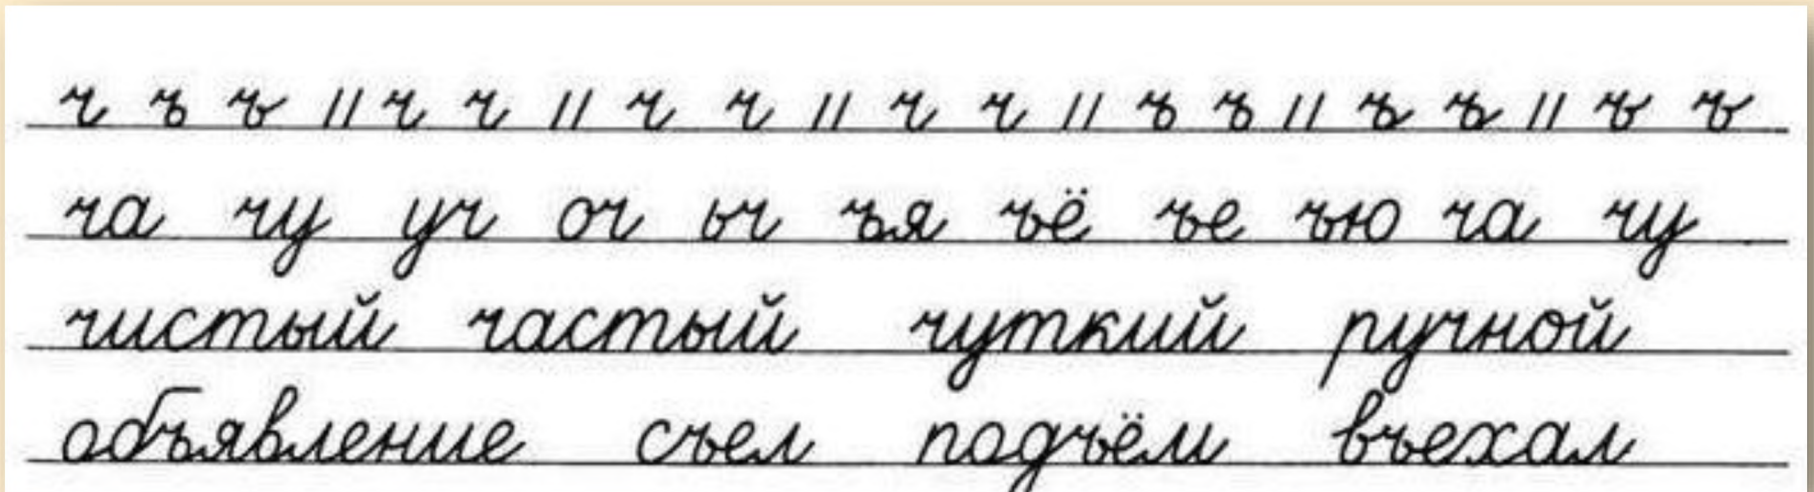 ч ъ ъ // ч ч // ч ч // ч ч // ъ ъ // ъ ъ // ъ ъ
ча чу уч оч ыч ъя ъё ъе ъю ча чу
чистый частый чуткий ручной
объявление съел подъём въехал